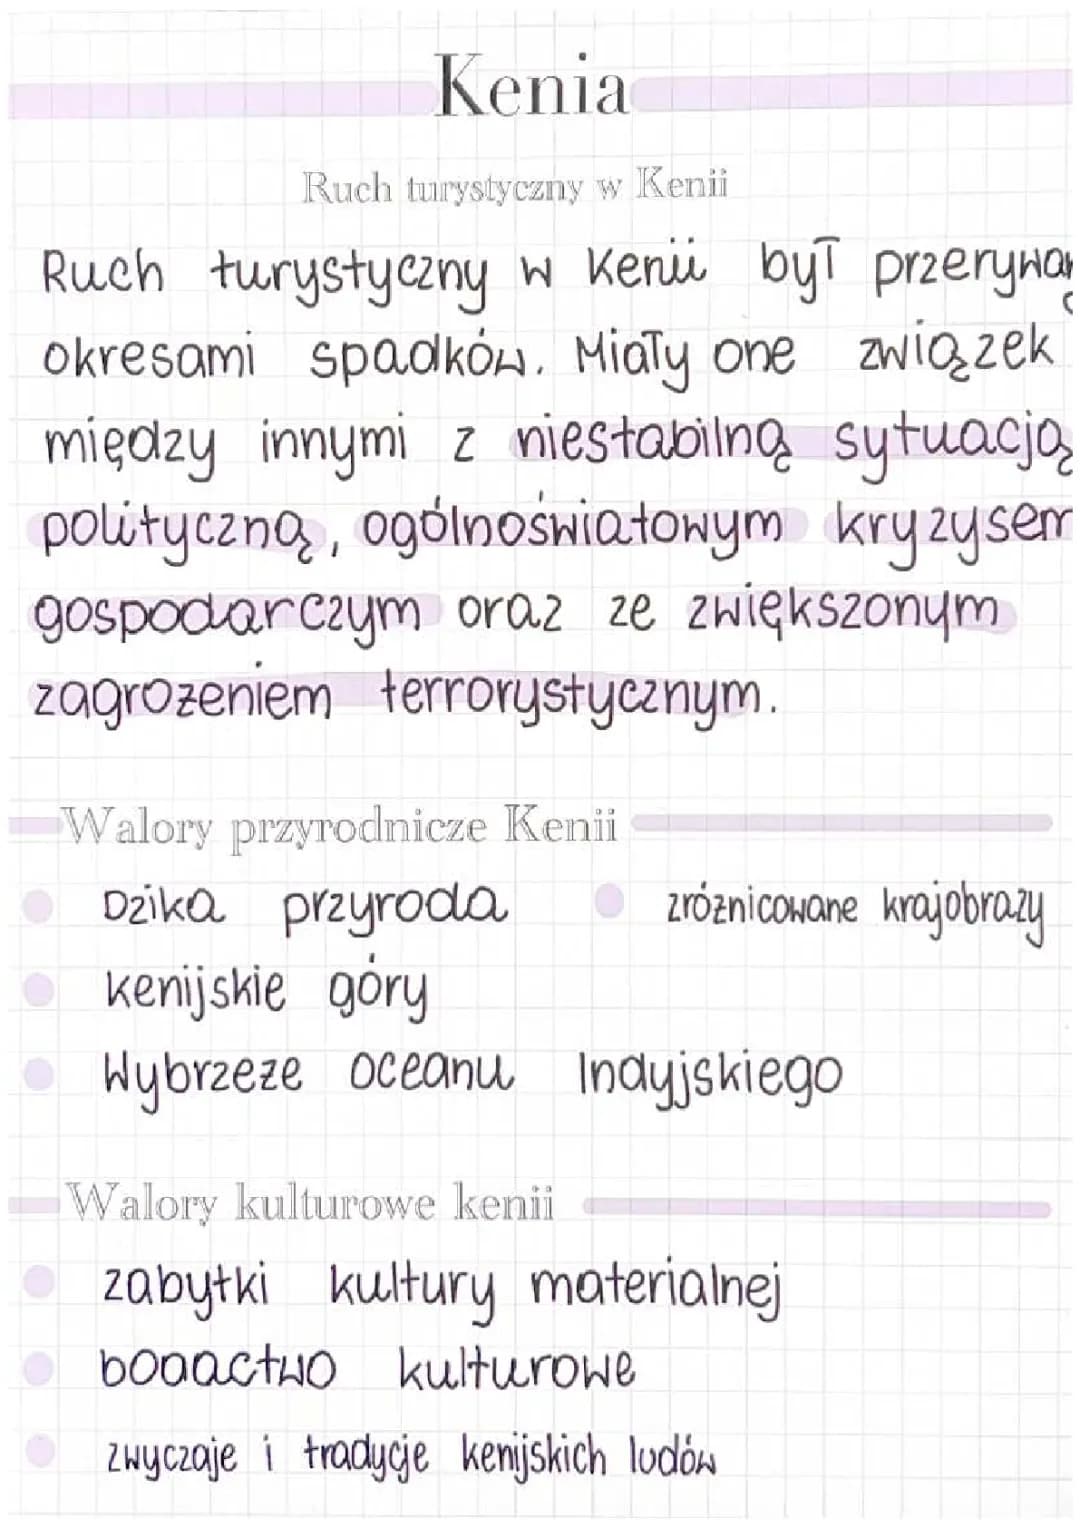 Kenia
Ruch turystyczny w Kenii
Ruch turystyczny w Kenii był przerywany
okresami spadków. Miały one związek
między innymi z niestabilną sytuacją
polityczną, ogólnoświatowym kryzysem
gospodarczym oraz ze zwiększonym
zagrożeniem terrorystycznym.
Walory przyrodnicze Kenii
Dzika przyroda
zróżnicowane krajobrazy
kenijskie góry
Wybrzeże oceanu Indyjskiego
Walory kulturowe kenii
zabytki kultury materialnej
bogactwo kulturowe
zwyczaje i tradycje kenijskich ludów